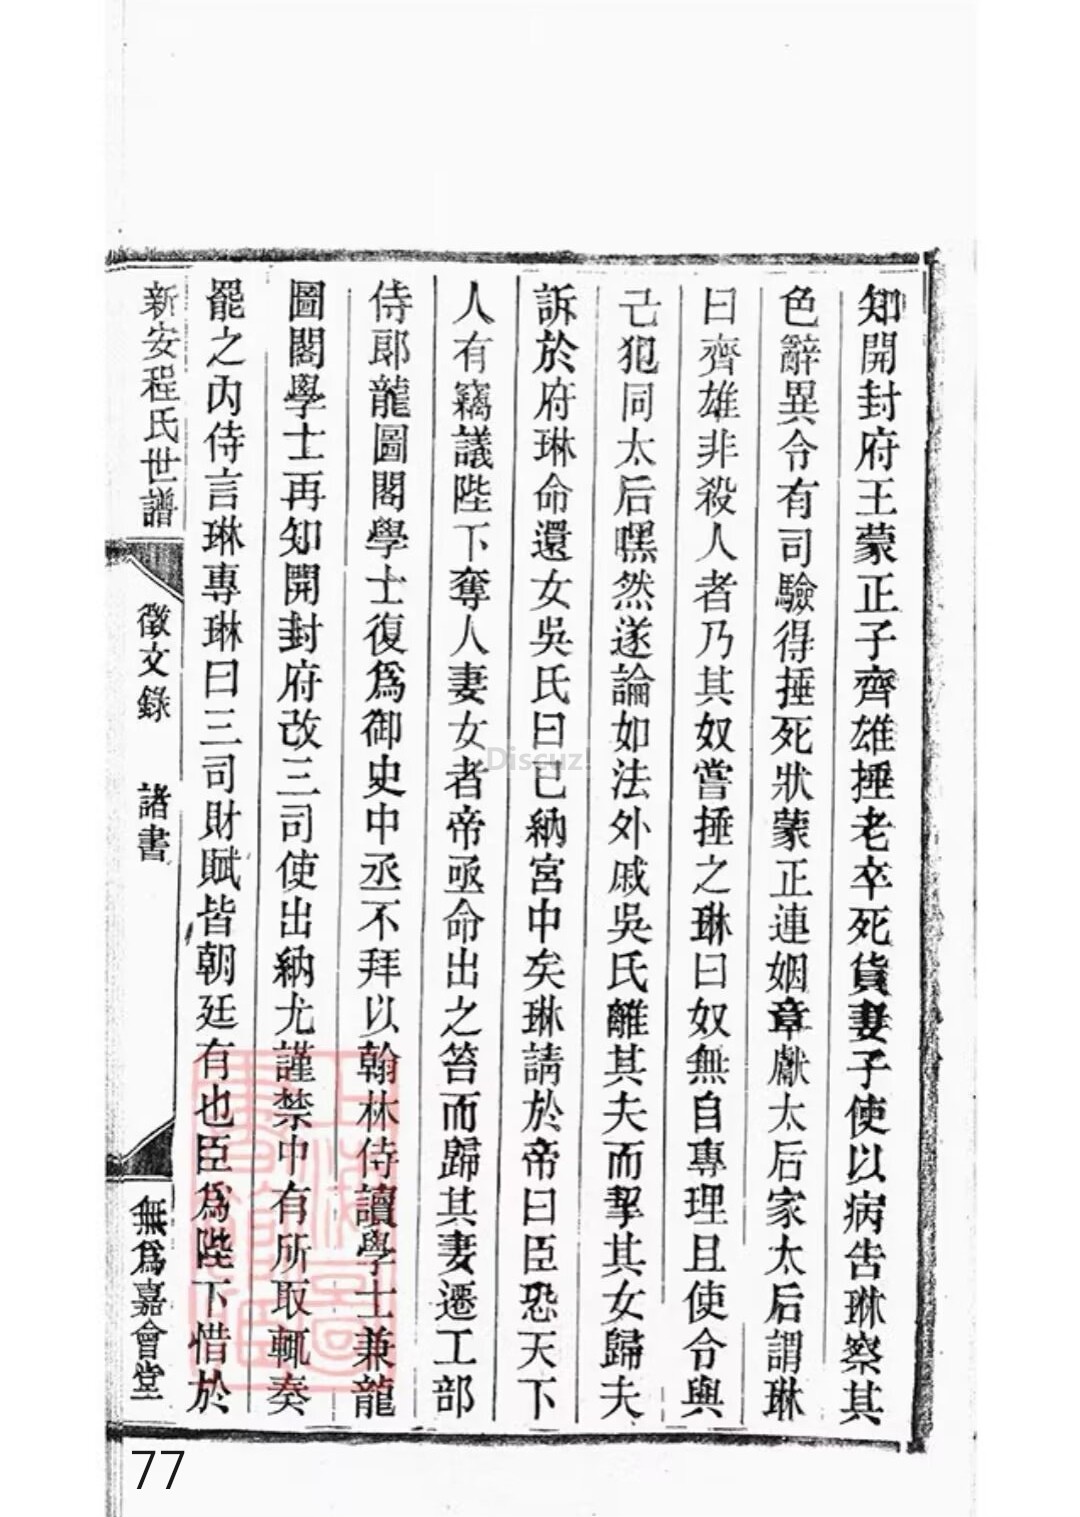 知開封府王蒙正子齊雄捶老卒死貨妻子使以病告琳察其
色辭異令有司驗得捶死狀蒙正連姻章獻太后家太后謂琳
曰齊雄非殺人者乃其奴嘗捶之琳曰奴無自專理且使令與
己犯同太后嘿然遂論如法外戚吳氏離其夫而挈其女歸夫
訴於府琳命還女吳氏曰已納宮中矣琳請於帝曰臣恐天下
人有竊議陛下奪人妻女者帝亟命出之笞而歸其妻遷工部
侍郎龍圖閣學士復為御史中丞不拜以翰林侍讀學士兼龍
圖閣學士再知開封府改三司使出納尤謹禁中有所取輒奏
罷之內侍言琳專琳曰三司財賦皆朝廷有也臣為陛下惜於
新安程氏世譜 徵文錄 諸書 無為嘉會堂
Discuz!
77